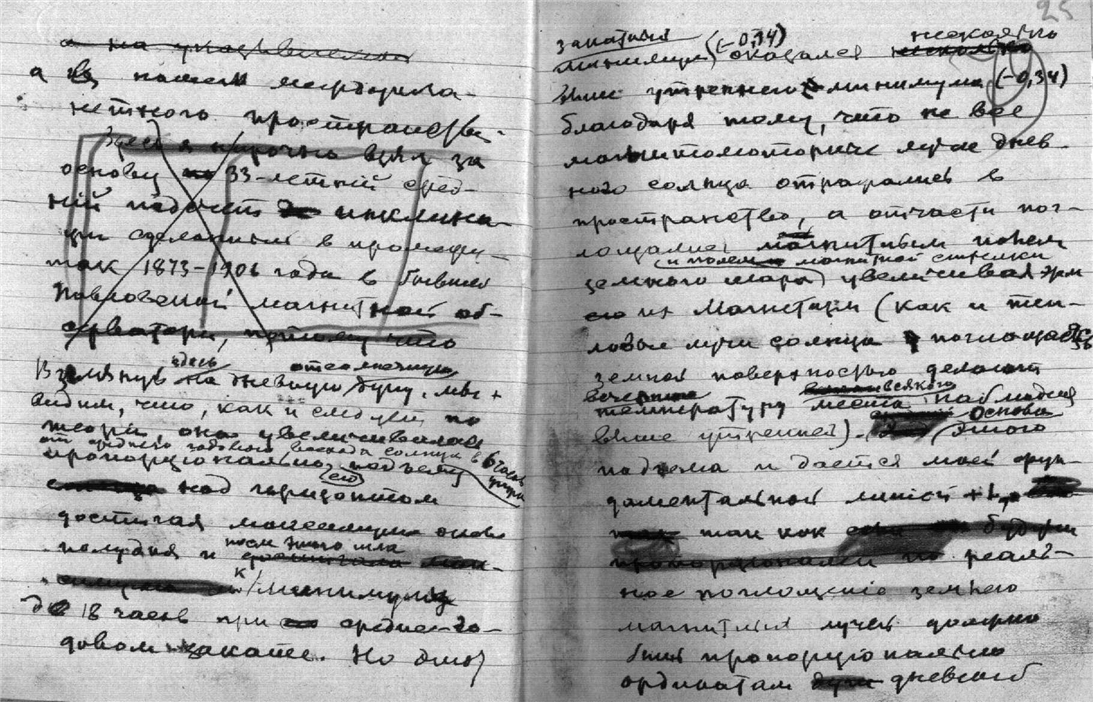 а на указывается
а в нашем междупла-
нетного пространства.
Здесь я нарочно взял за
основу 33-летний сред-
ний подсчет инклина-
ции сделанный в промежу-
ток 1873–1906 года в бывшей
Павловской магнитной об-
серватории, потому что
Взглянув здесь на дневную отсолнечную дугу, мы
видим, что, как и следует по
теории она увеличивалась
от среднего годового восхода солнца в 6 часов утра
пропорционально подъему его
над горизонтом
достигая максимума около
полудня и после этого шла
к минимуму
до 18 часов при средне-го-
довом закате. Но этот
25
закатный (–0,14) несколько
минимум оказался
выше утреннего минимума (–0,34)
благодаря тому, что не все
магнитомоторные лучи днев-
ного солнца отражались в
пространство, а отчасти пог-
лощались магнитным полем
и полем магнитной стрелки
земного шара увеличивая эти
его из Магнетизм (как и теп-
ловые лучи солнца поглощаясь
земной поверхностью делают
вечернюю всякого
температуру места наблюдения
выше утренней). Основа
этого
подъема и дается моей фун-
даментальной линией +L,
так как будучи
пропорционален по реаль-
ное поглощение земнего
магнитных лучей должно
быть пропорционально
ординатам дневной